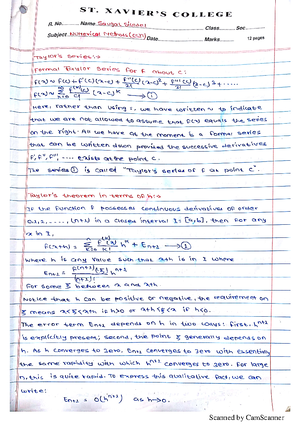 ST. XAVIER'S COLLEGE
Sl. No. Name Class Sec
Subject Numerical Methods Date Marks 12 pages
Taylor's Series:-
Formal Taylor Series for f about c:
f(x) ~ f(c) + f'(c)(x-c) + f''(c)/2! (x-c)² + f'''(c)/3! (x-c)³ + ......
f(x) ~ ∑ fᵏ(c)/k! (x-c)ᵏ → ①
Here, rather than using =, we have written ~ to indicate
that we are not allowed to assume that f(x) equals the series
on the right. All we have at the moment is a formal series
that can be written down provided the successive derivatives
f', f'', f''', .... exists at the point c.
The series ① is called "Taylor's series of f at point c".
Taylor's theorem in terms of h:-
If the function f possesses continuous derivatives of order
0,1,2,......,(n+1) in a closed interval I = [a,b], then for any
x in I,
f(x+h) = ∑ fᵏ(x)/k! hᵏ + Eₙ₊₁ → ①
where h is any value such that x+h is in I where
Eₙ₊₁ = fⁿ⁺¹(ξ)/(n+1)! hⁿ⁺¹
for some ξ between x and x+h
Notice that h can be positive or negative, the requirement on
ξ means x<ξ<x+h if h>0 or x+h<ξ<x if h<0.
The error term Eₙ₊₁ depends on h in two ways: First, hⁿ⁺¹
is explicitly present; second, the point ξ generally depends on
h. As h converges to zero, Eₙ₊₁ converges to zero with essentially
the same rapidity with which hⁿ⁺¹ converges to zero. For large
n, this is quite rapid. To express this qualitative fact, we can
write:
Eₙ₊₁ = O(hⁿ⁺¹) as h→0.
Scanned by CamScanner